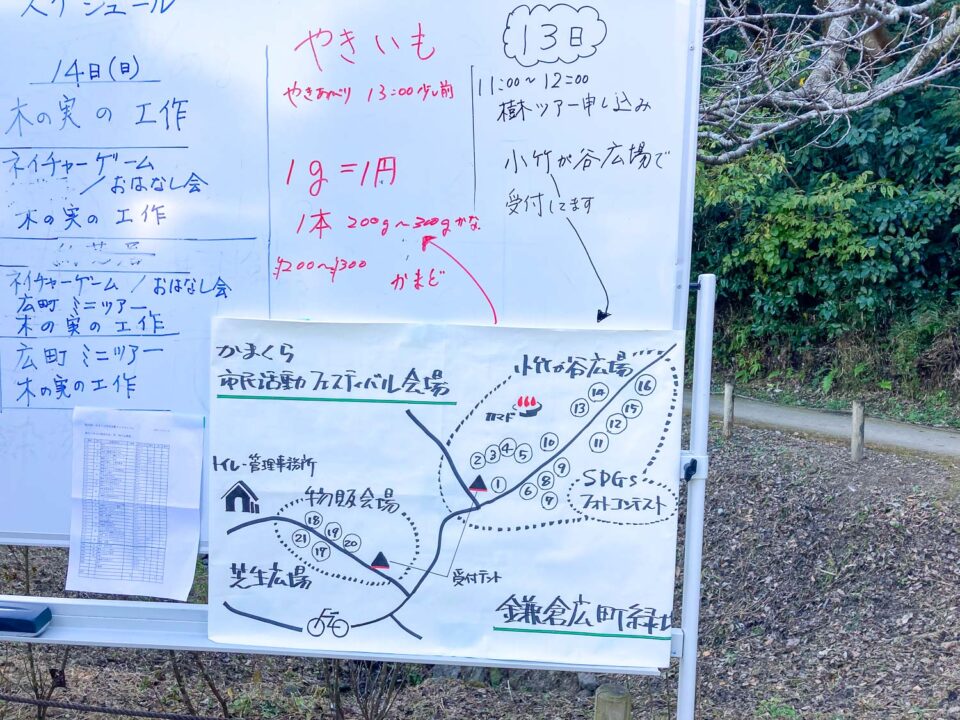 スケジュール
14日(日)
木の実の工作
ネイチャーゲーム
/おはなし会
木の実の工作
ネイチャーゲーム/おはなし会
広町ミニツアー
木の実の工作
広町ミニツアー
木の実の工作
やきいも
13:00少し前
1g=1円
1本 200g~300gかな
¥200~¥300
かまど
13日
11:00~12:00
樹ツアー申し込み
小竹が谷広場で
受付してます
かまくら
市民活動フェスティバル会場
小竹が谷広場
カマド
⑯
⑭
⑬
⑮
⑫
⑪
⑩
② ③ ④ ⑤
①
⑨
⑥ ⑧
⑦
SDGs
フォトコンテスト
トイレ・管理事務所
物販会場
⑱
⑲
⑳
㉑
芝生広場
受付テント
鎌倉広町緑地